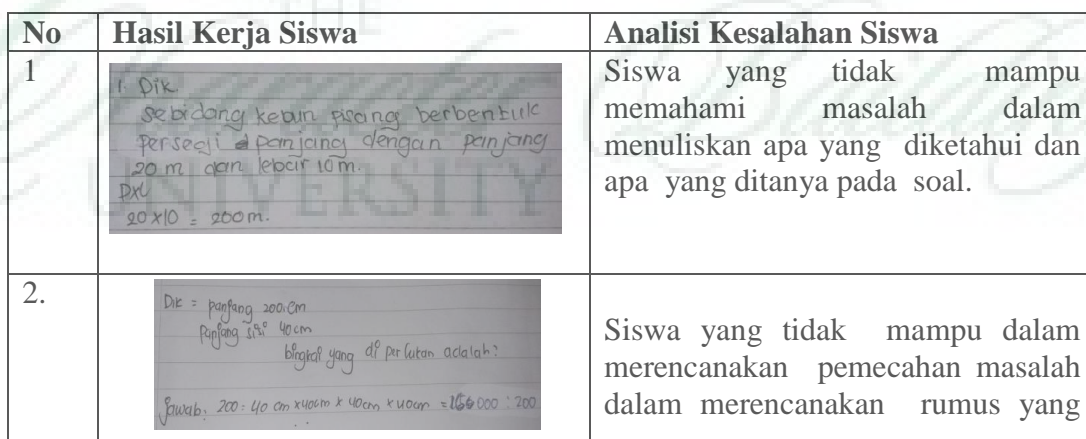 THE
UNIVERSITY
No Hasil Kerja Siswa Analisi Kesalahan Siswa
1
1. Dik
sebidang kebun pisang berbentuk
persegi panjang dengan panjang
20 m dan lebar 10 m.
PXL
20 x 10 = 200 m.
Siswa yang tidak mampu
memahami masalah dalam
menuliskan apa yang diketahui dan
apa yang ditanya pada soal.
2.
Dik = panjang 200 cm
Panjang sisi 40 cm
bingkai yang di perlukan adalah?
Jawab: 200 : 40 cm x 40cm x 40cm x 40cm = 000 : 200
Siswa yang tidak mampu dalam
merencanakan pemecahan masalah
dalam merencanakan rumus yang